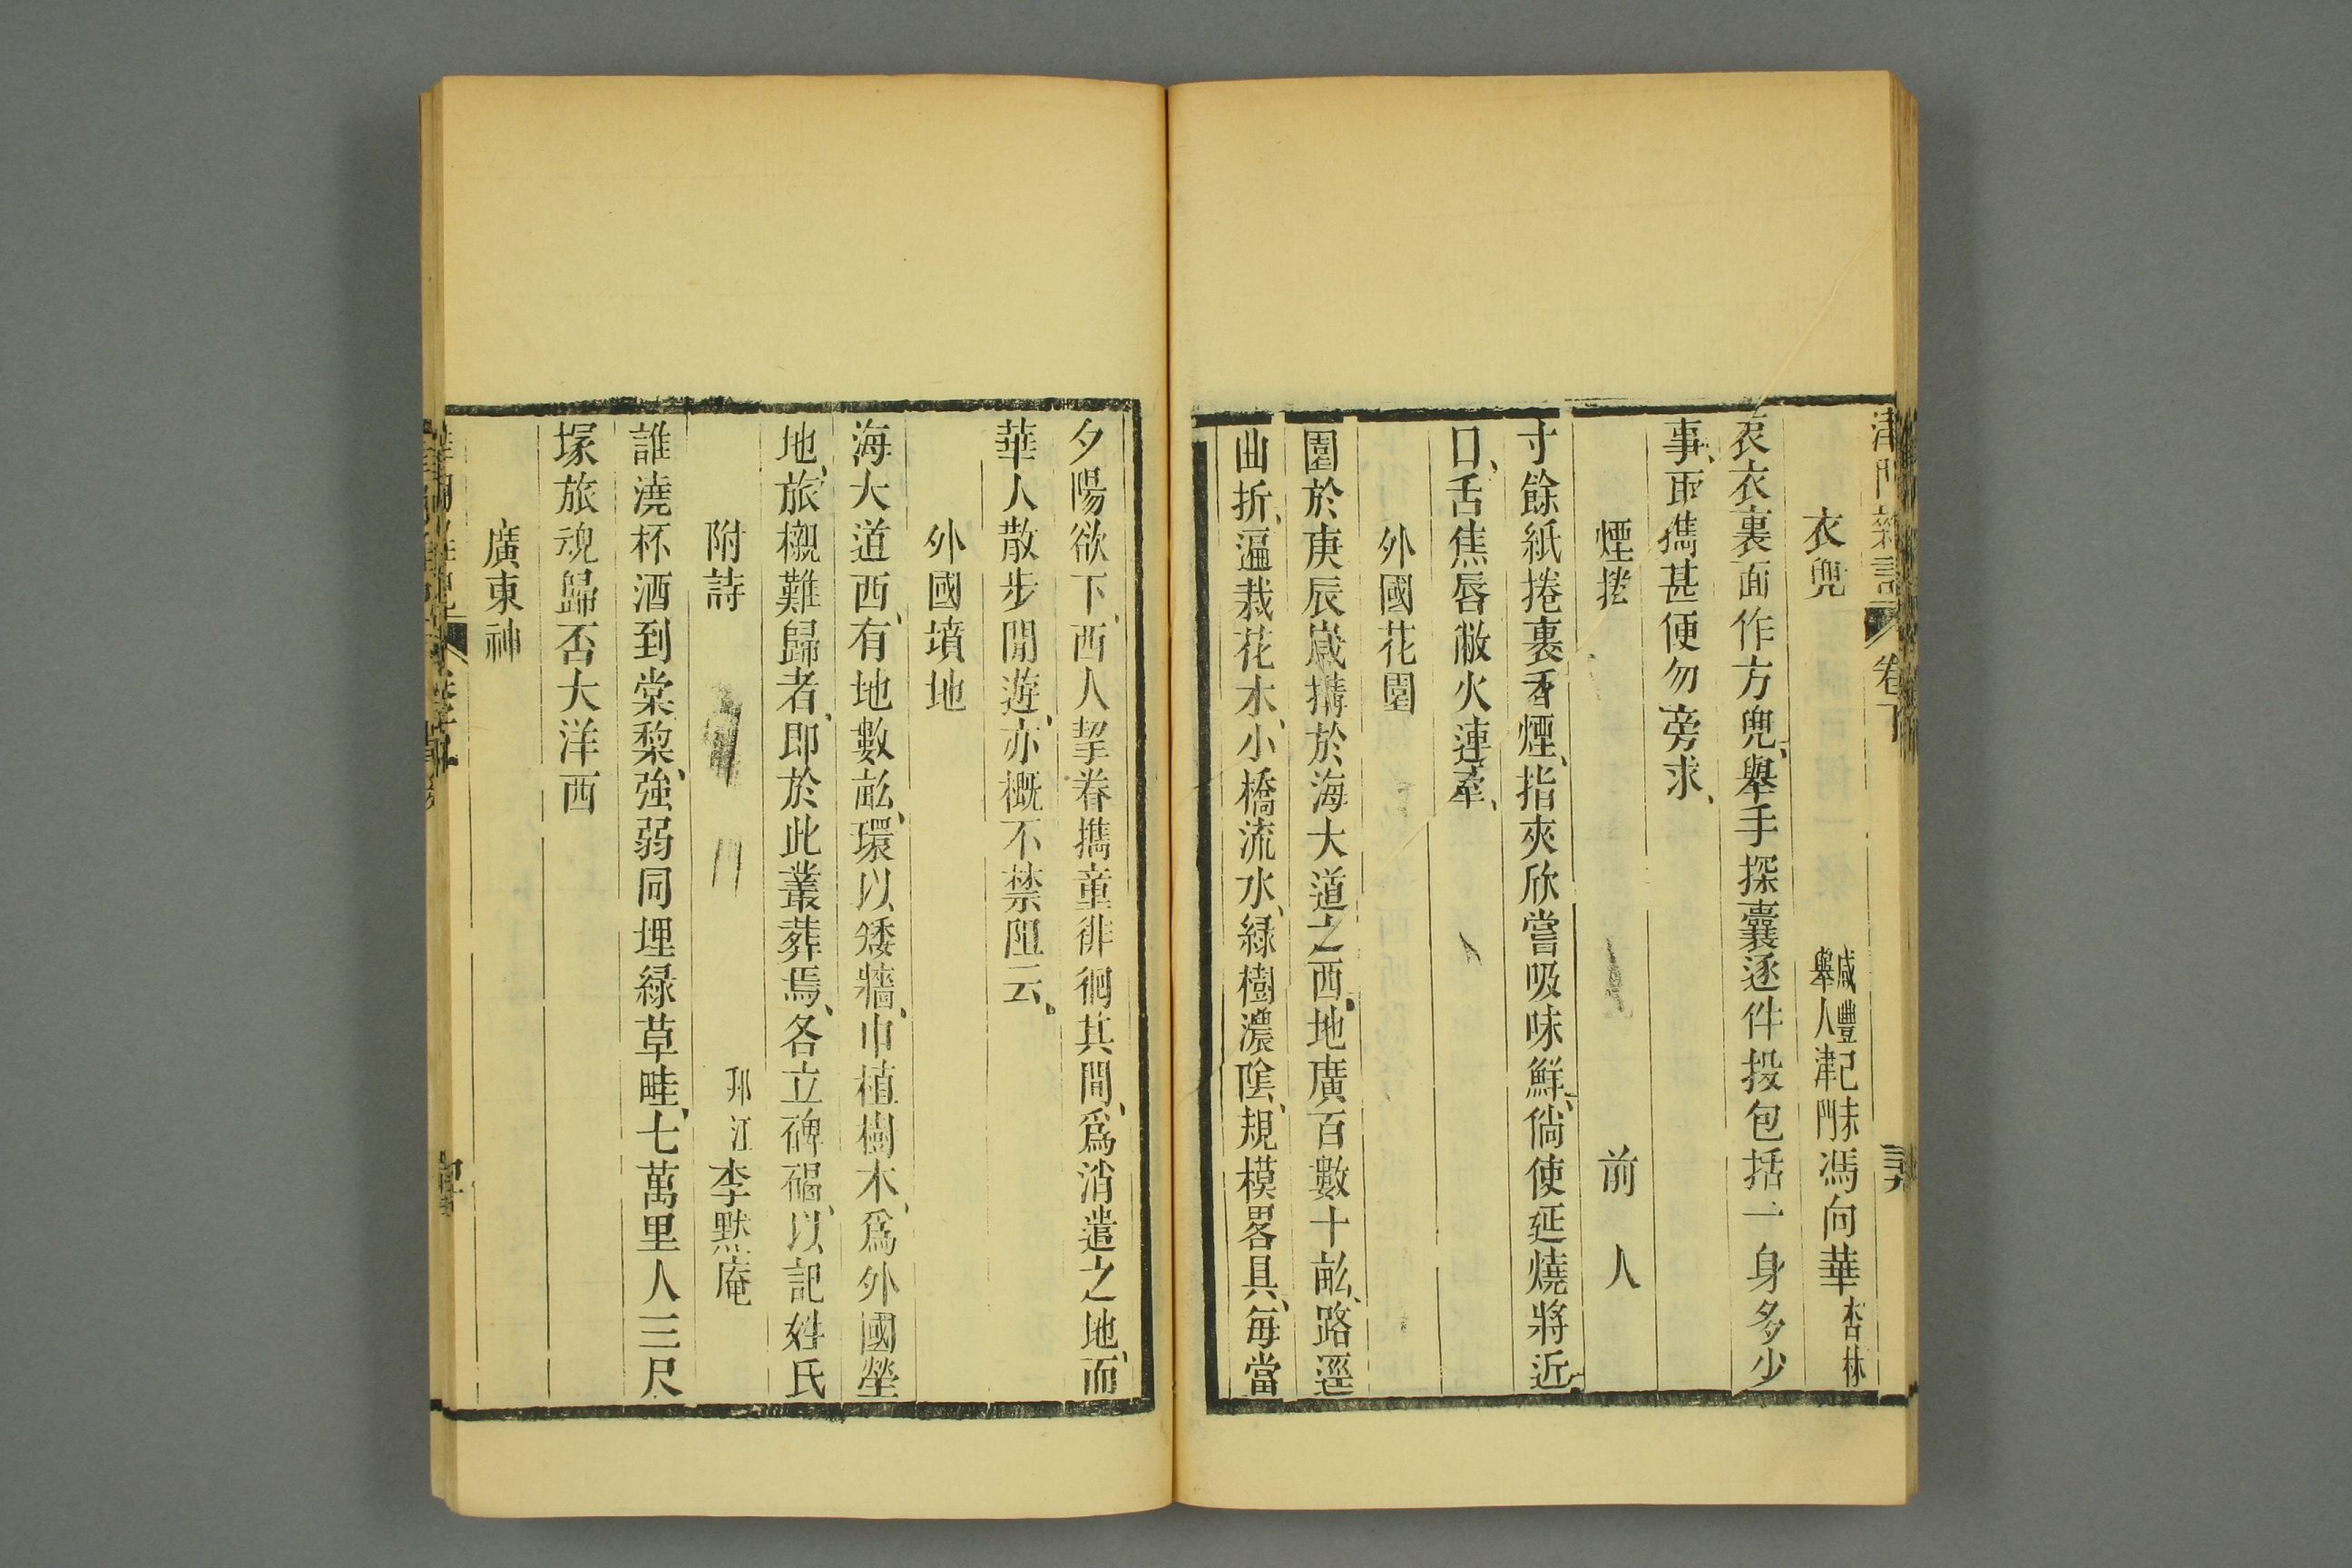 津門雜記 卷下
衣兜 咸豐己未舉人津門馮向華杏林
衣裏面作方兜、舉手探囊逐件投包括一身多少
事、取攜甚便勿旁求、
煙捲 前人
寸餘紙捲裏香煙、指夾欣嘗吸味鮮、倘使延燒將近
口、舌焦唇敝火連牽、
外國花園
園於庚辰歲搆於海大道之西、地廣百數十畝、路逕
曲折、遍栽花木、小橋流水、緑樹濃陰、規模畧具、每當
夕陽欲下、西人挈眷攜童徘徊其間、爲消遣之地、而
華人散步閒遊、亦概不禁阻云、
外國墳地
海大道西、有地數畝、環以矮牆、巾植樹木、爲外國塋
地、旅櫬難歸者、即於此叢葬焉、各立碑碣、以記姓氏
附詩 邗江李默庵
誰澆杯酒到棠棃、強弱同埋緑草畦、七萬里人三尺
塚旅魂歸否大洋西
廣東神